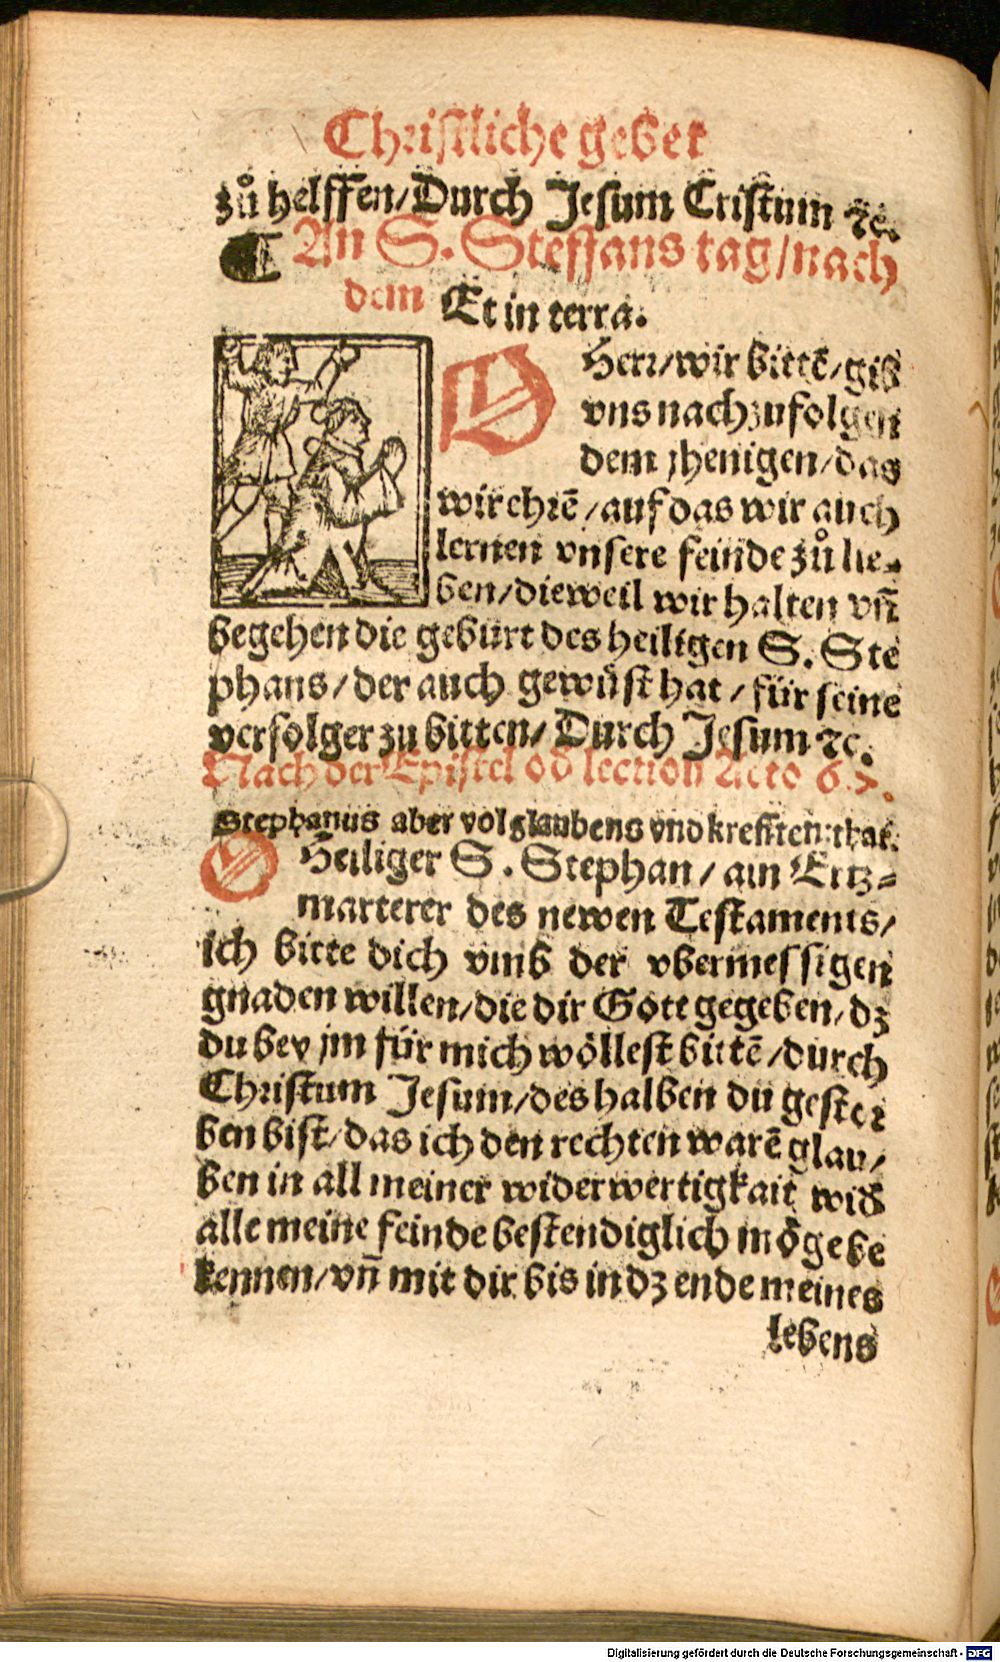 Christliche gebet
zů helffen/Durch Jesum Cristum ꝛc.
¶ An S. Steffans tag/nach
dem Et in terra.
O Herr/wir bittē/gib
vns nachzufolgen
dem jhenigen/das
wir ehrē/auf das wir auch
lernen vnsere feinde zů lie-
ben/dieweil wir halten vñ
begehen die geburt des heiligen S. Ste
phans/der auch gewůst hat/für seine
verfolger zu bitten/Durch Jesum ꝛc.
Nach der Epistel od lection Acto 6.7.
Stephanus aber vol glaubens vnd krefften: that.
O Heiliger S. Stephan/ain Ertz-
marterer des newen Testaments/
ich bitte dich vmb der vbermessigen
gnaden willen/die dir Gott gegeben/dz
du bey jm für mich wöllest bittē/durch
Christum Jesum/des halben du gestor
ben bist/das ich den rechten warē glau/
ben in all meiner widerwertigkait wid
alle meine feinde bestendiglich möge be
kennen/vñ mit dir bis in dz ende meines
lebens
Digitalisierung gefördert durch die Deutsche Forschungsgemeinschaft - DFG